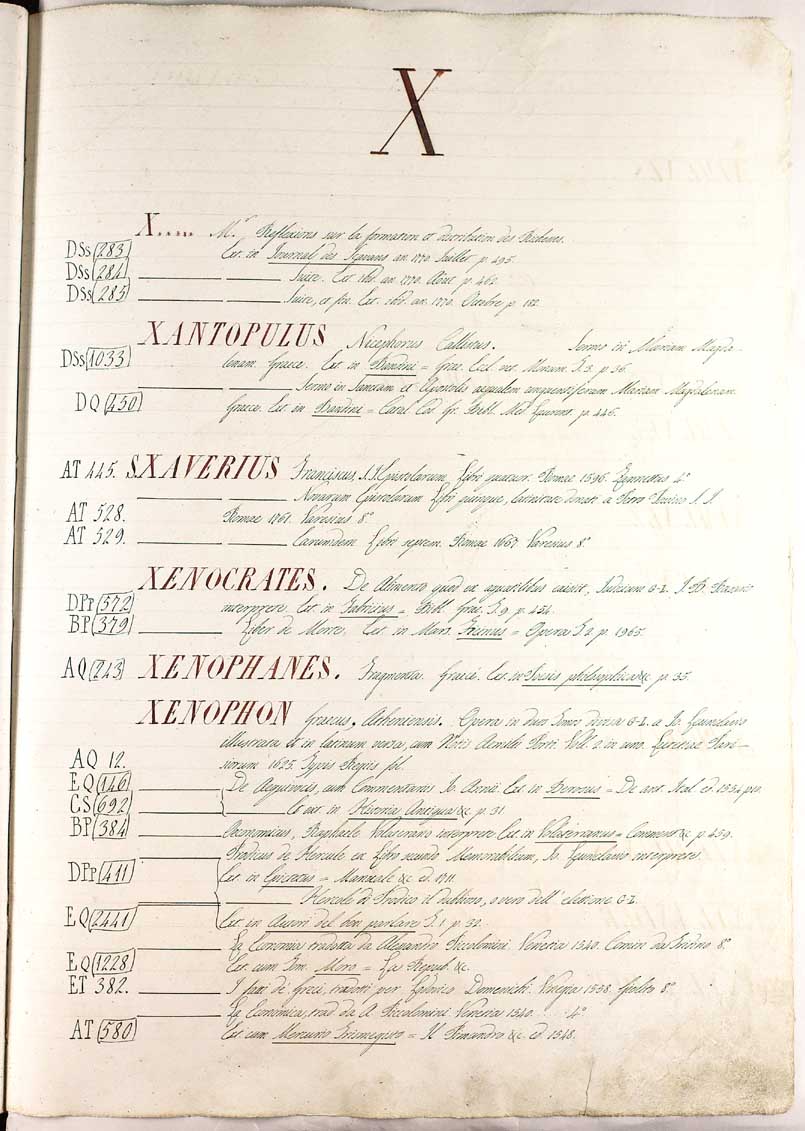 X
X..... Mr. Reflexions sur la formation et distribution des Rochers.
DSs (283) Est. in Journal des Sçavans an. 1770. Juillet p. 495.
DSs (284) Suite. Est. ibid. an. 1770. Aout p. 462.
DSs (285) Suite, et fin. Est. ibid. an. 1770. Octobre p. 182.
XANTOPULUS Nicephorus Callistus. Sermo in Mariam Magda-
DSs (1033) lenam. Graece. Est in Bandini = Graec. Eccl. vet. Monum. T. 3. p. 36.
Sermo in Sanctam et Apostolis aequalem unguentiferam Mariam Magdalenam.
DQ (450) Graece. Est. in Bandini = Catal. Cod. Gr. Bibl. Med. Laurent. p. 446.
AT 445. S. XAVERIUS Franciscus, S. J. Epistolarum, Libri quatuor. Romae 1596. Zannettus 4°
Novarum Epistolarum Libri quinque, latinitate donati a Petro Possino S. J.
AT 528. Romae 1661. Varesius 8°
AT 529. Earumdem Libri septem. Romae 1667. Varesius 8°
XENOCRATES. De Alimento quod ex aquatilibus G-L. J. B.
DPp (572) interprete. Est. in Fabricius = Bibl. Graec. T. 9. p. 454.
BP (379) Liber de Morte. Est. in Mars. Ficinus = Opera T. 2. p. 1965.
AQ (243) XENOPHANES. Fragmenta. Graecè. Est. in Poësis philosophica &c. p. 35.
XENOPHON Graecus, Atheniensis. Opera in duos Tomos divisa G-L. a Jo. Leunclavio
illustrata et in latinum versa, cum Notis Aemilii Porti. Voll. 2. in uno. Lutetiae Pari-
AQ 12. siorum 1625. Typis Regiis fol.
EQ (146) De Aequivocis, cum Commentariis Jo. Annii. Est. in Berosus = De ant. Ital. ed. 1554
CS (692) Et aut. in Historia Antiqua &c. p. 31.
BP (384) Oeconomicus, Raphaele Volaterrano interprete Est. in Volaterranus = Comment. &c. p. 459.
Prodicus de Hercule ex Libro secundo Memorabilium, Jo. Leunclavio interprete.
DPp (411) Est. in Epictetus = Manuale &c. ed. 1711.
Hercole di Prodico il dubbio, o vero dell' elezione G-L.
EQ (2441) Est. in Autori del ben parlare T. 1. p. 32.
La Economia tradotta da Alessandro Piccolomini. Venetia 1540. Comin da Trino 8°
EQ (1228) Est. cum Tom. Moro = La Repub. &c.
ET 382. I fatti de' Greci, tradotti per Lodovico Domenichi. Venezia 1558. Giolito 8°
La Economica, trad. da A. Piccolomini. Venetia 1540. 4°
AT (580) Est. cum Mercurio Trismegisto = Il Pimandro &c. ed. 1548.